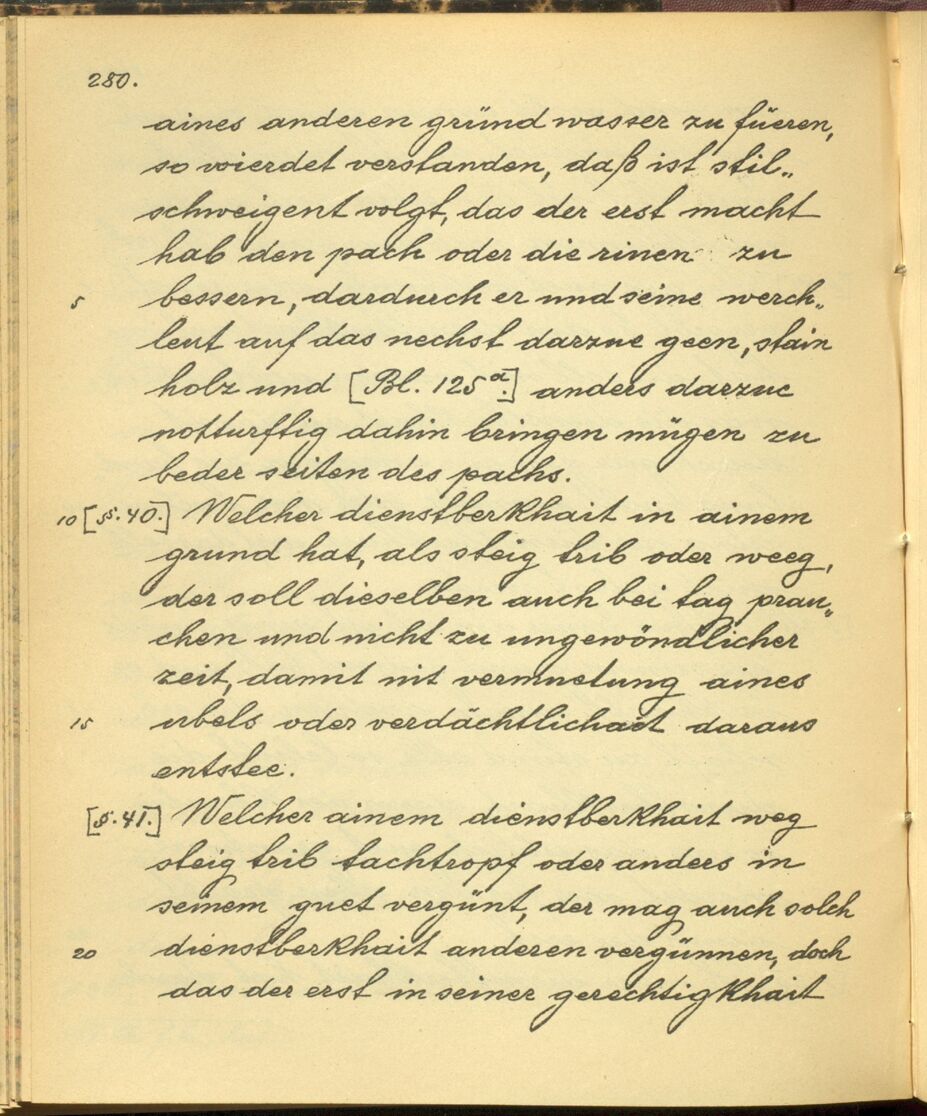 280.
aines anderen gründ wasser zu füeren,
so wierdet verstanden, daß ist stil„
schweigent volgt, das der erst macht
hab den pach oder die rinen zu
5 bessern, dardurch er und seine werch„
leut auf das nechst darzue geen, stain
holz und [Bl. 125a.] anders darzue
notturftig dahin bringen mügen zu
beder seiten des pachs.
10 [§. 40.] Welcher dienstberkhait in ainem
grund hat, als steig trib oder weeg,
der soll dieselben auch bei tag prau„
chen und nicht zu ungewöndlicher
zeit, damit nit vermuetung aines
15 ubels oder verdächtlichait daraus
entstee.
[§. 41.] Welcher ainem dienstberkhait weg
steig trib tachtropf oder anders in
seinem guet vergünt, der mag auch solch
20 dienstberkhait anderen vergünnen, doch
das der erst in seiner gerechtigkhait